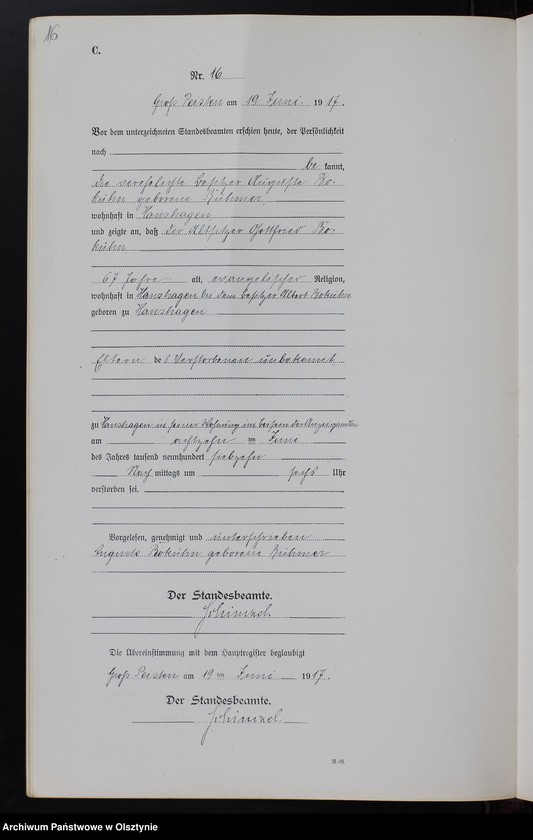 16
C.
Nr. 16
Groß Peisten am 19 Juni 1917.
Vor dem unterzeichneten Standesbeamten erschien heute, der Persönlichkeit
nach
be kannt,
die verehelichte Besitzer Auguste Bo-
kuhn geborene Kühmer
wohnhaft in Hanshagen
und zeigte an, daß der Altsitzer Gottfried Bo-
kuhn
67 Jahre alt, evangelischer Religion,
wohnhaft in Hanshagen bei dem Besitzer Albert Bokuhn
geboren zu Hanshagen
Eltern des Verstorbenen unbekannt
zu Hanshagen in seiner Wohnung im Beisein der Anzeigenden
am achtzehn ten Juni
des Jahres tausend neunhundert siebzehn
Nach mittags um sechs Uhr
verstorben sei.
Vorgelesen, genehmigt und unterschrieben
Auguste Bokuhn geborene Kühmer
Der Standesbeamte.
Die Übereinstimmung mit dem Hauptregister beglaubigt
Groß Peisten am 19 ten Juni 1917.
Der Standesbeamte.
Archiwum Państwowe w Olsztynie